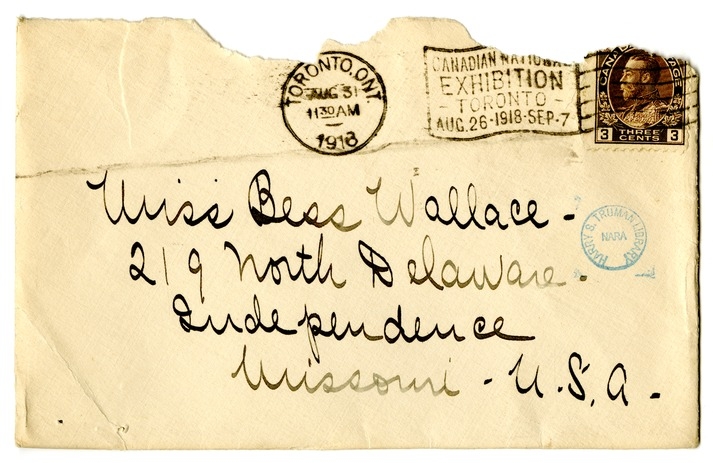 TORONTO, ONT.
AUG 31
11 30 AM
1918
CANADIAN NATIONAL
EXHIBITION
- TORONTO -
AUG. 26 - 1918 - SEP. 7
THREE
CENTS
3 3
Miss Bess Wallace -
219 North Delaware -
Independence
Missouri - U.S.A -
HARRY S. TRUMAN LIBRARY
NARA